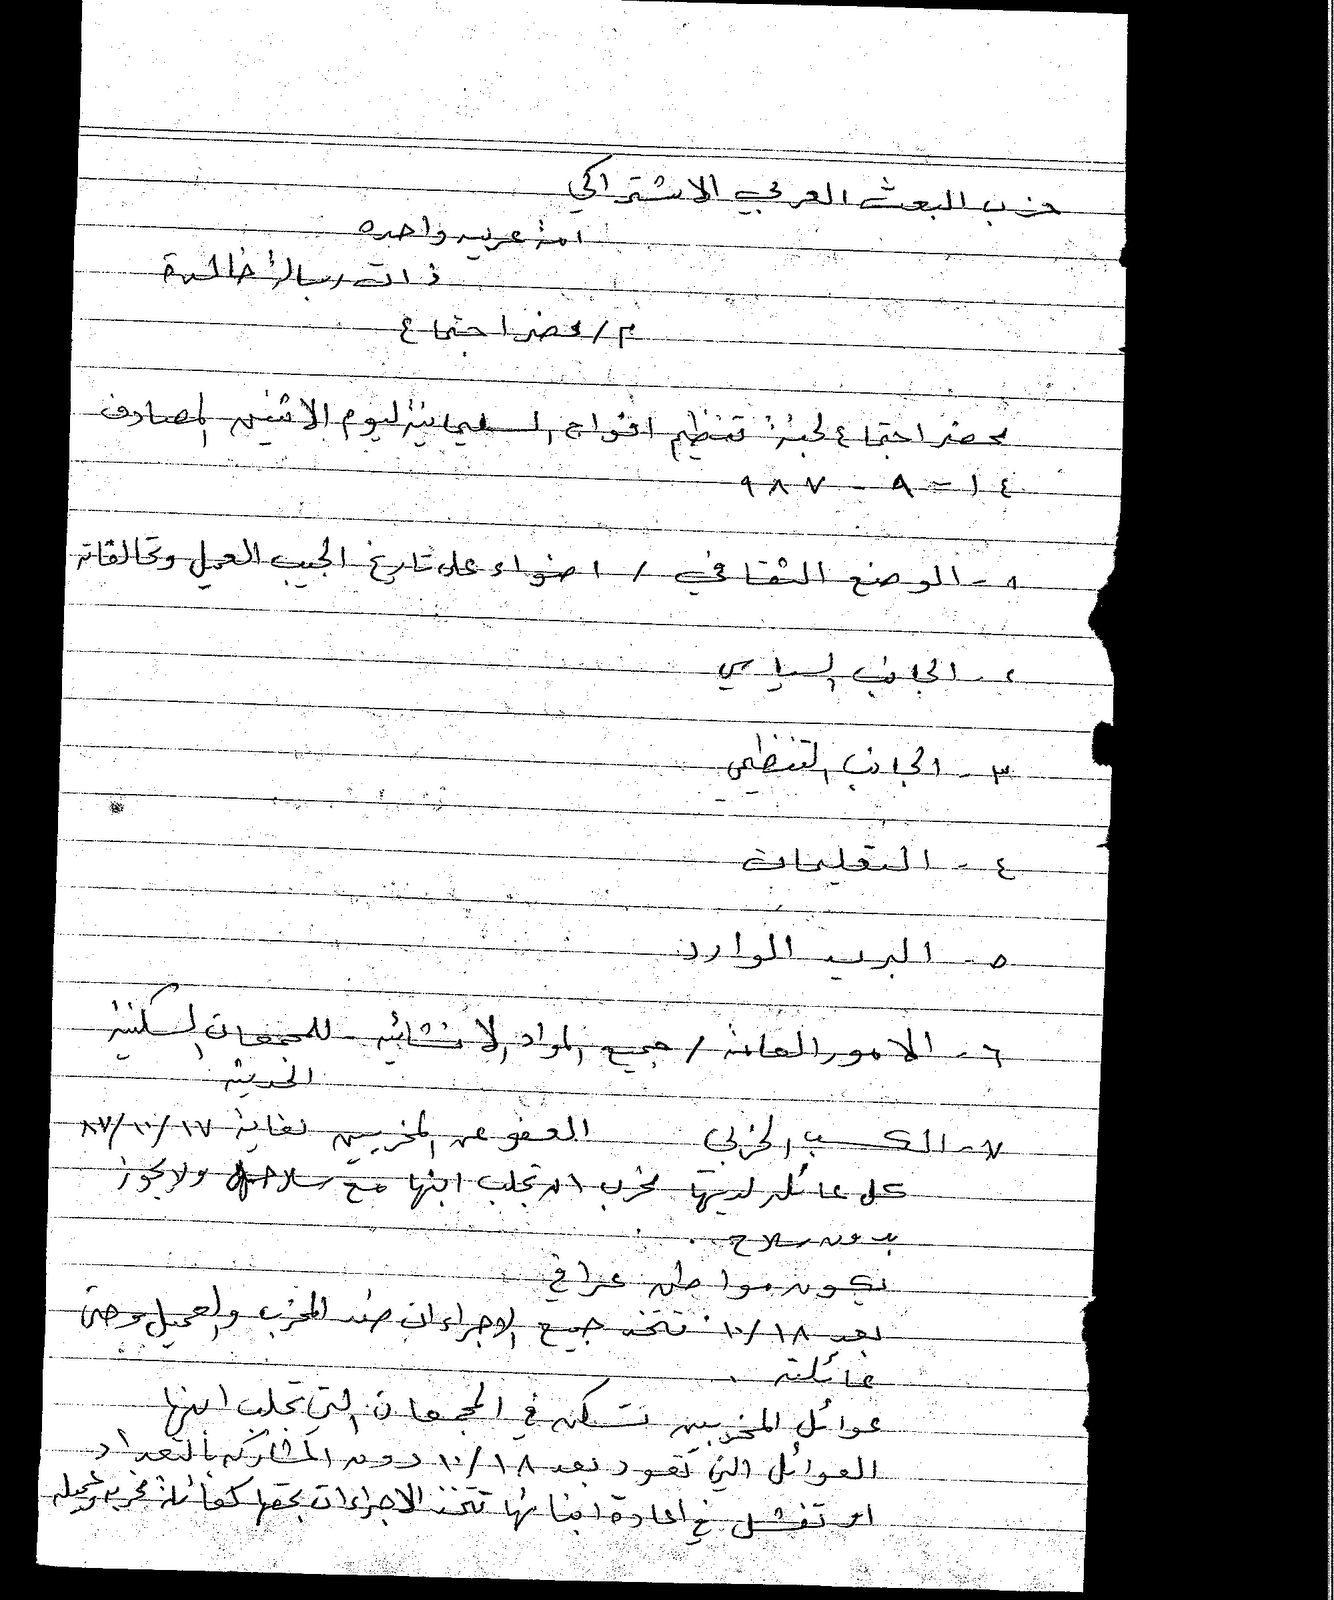 حزب البعث العربي الاشتراكي
امة عربيه واحده
ذات رسالة خالدة
م/ محضر اجتماع
محضر اجتماع لجنة تنظيم افواج السليمانية ليوم الاثنين المصادف
١٤ - ٩ - ٩٨٧
١- الوضع الثقافي / اضواء على تاريخ الجيب العميل وتحالفاته
٢- الجانب السياسي
٣- الجانب التنظيمي
٤- التعليمات
٥- البريد الوارد
٦- الامور العامه / جميع المواد الانشائيه للمجمعات السكنية
الحديثه
٧- الكسب الحزبي العفو عن المخربين لغاية ١٧/١٠/٨٧
كل عائله لديها مخرب ان تجلب ابنها مع سلاحه ولا يجوز
بدون سلاح ..
يكون مواطن عراقي
بعد ١٨/١٠ تتخذ جميع الاجراءات ضد المخرب والعميل وحتى
عائلته .
عوائل المخربين تسكن في المجمعات التي تجلب ابنها
العوائل التي تعود بعد ١٨/١٠ دون المشاركه بالتعداد
او تفشل في اعادة ابنائها تتخذ الاجراءات بحقها كعائلة مخربه وعميله